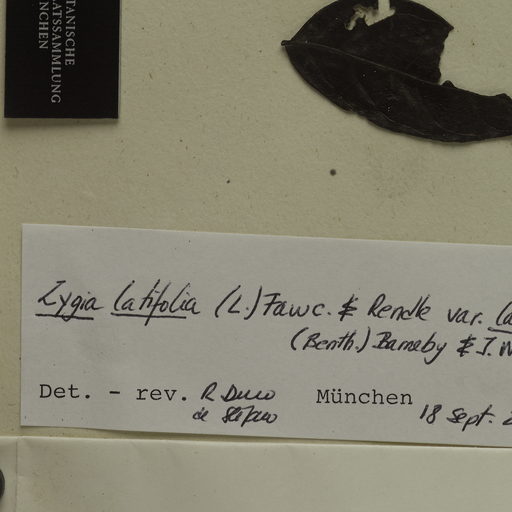 TANISCHE
ATSSAMMLUNG
NCHEN
Zygia latifolia (L.) Fawc. & Rendle var. la
(Benth.) Barneby & J.W
Det. - rev. R Duno München
de Stefano
18 Sept. 2